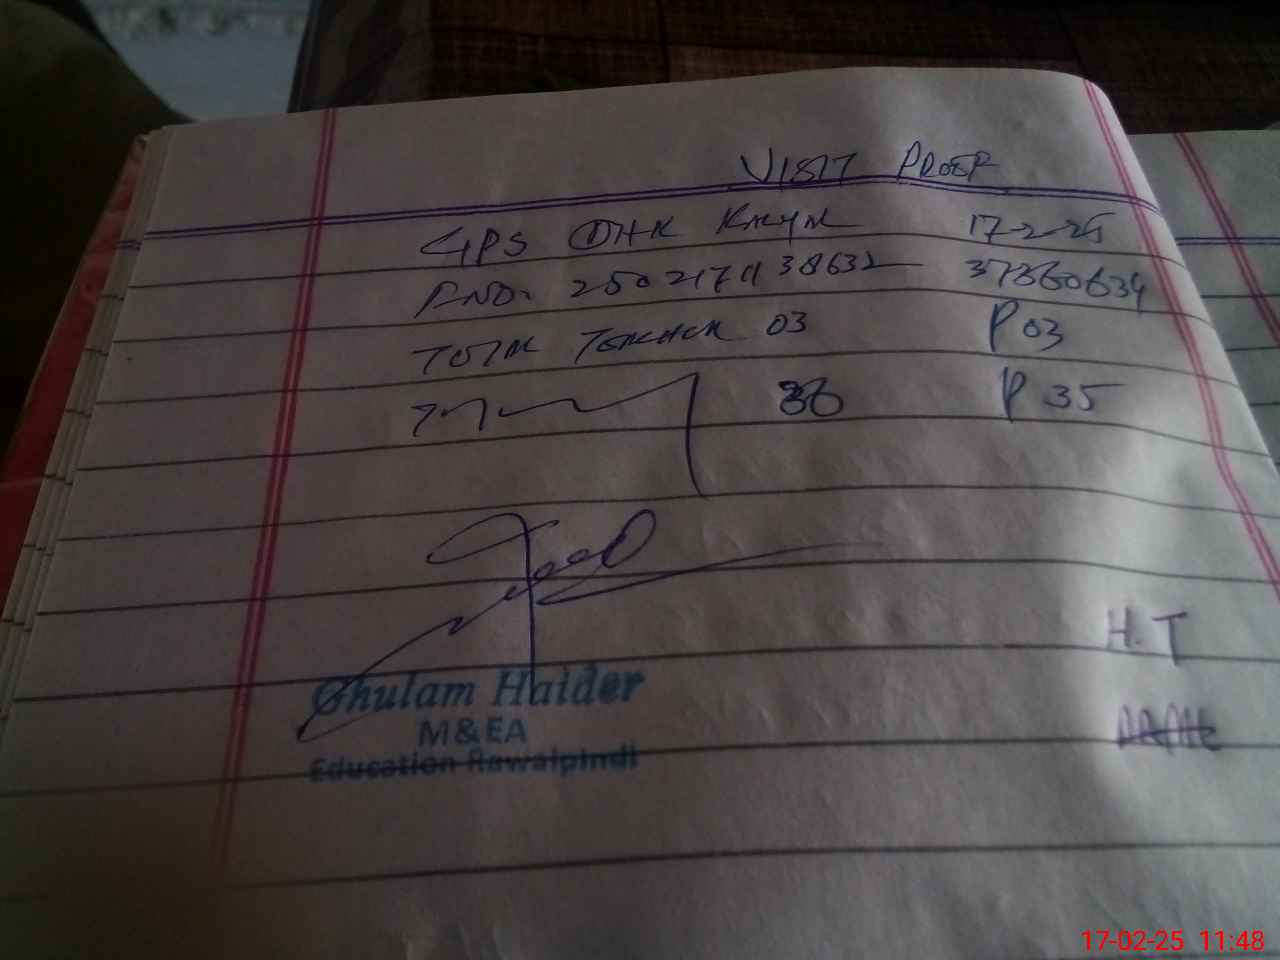 VISIT PROOF
GPS DHK 17-2-25
37360634
TOTAL TEACHER 03 P 03
36 P 35
Ghulam Haider
M&EA
Education Rawalpindi
H.T
17-02-25 11:48